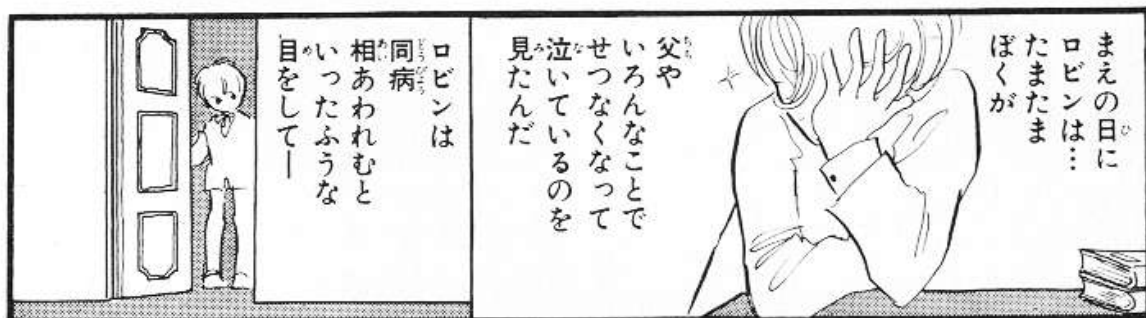 まえの日に
ロビンは…
たまたま
ぼくが
父や
いろんなことで
せつなくなって
泣いているのを
見たんだ
ロビンは
同病
相あわれむと
いったふうな
目をして―